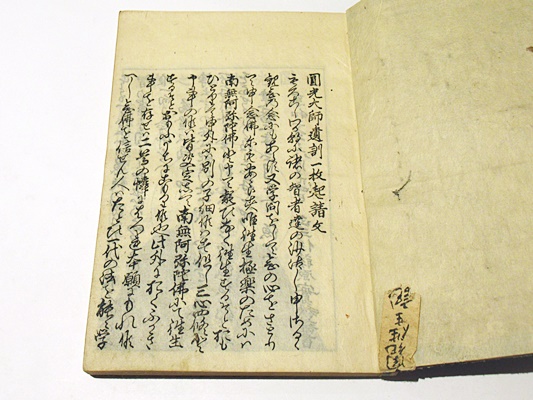 圓光大師遺訓一枚起請文
もろこし我朝に諸の智者達の沙汰し申さるゝ
観念の念にもあらす又学問をして念の心をさとり
て申念佛にもあらす唯往生極楽のためには
南無阿弥陀佛と申て疑ひなく往生するそと思
ひとりて申外には別の子細候はす但し三心四修と
申事の候は皆决定して南無阿弥陀佛にて往生
するそと思ふうちにこもり候也此外におくふかき
事を存せは二尊の憐にはつれ本願にもれ候
へし念佛を信せん人はたとひ一代の法を能々学